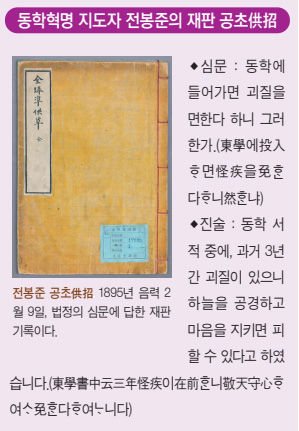 동학혁명 지도자 전봉준의 재판 공초供招
全琫準供草
◆심문 : 동학에
들어가면 괴질을
면한다 하니 그러
한가.(東學에投入
ᄒᆞ면怪疾을免ᄒᆞᆫ
다ᄒᆞ니然ᄒᆞ냐)
◆진술 : 동학 서
적 중에, 과거 3년
간 괴질이 있으니
하늘을 공경하고
마음을 지키면 피
할 수 있다고 하였
습니다.(東學書中云三年怪疾이在前ᄒᆞ니敬天守心ᄒᆞ
여ᄉᆞ免ᄒᆞᆫ다ᄒᆞ여ᄂᆞ니다)
전봉준 공초供招 1895년 음력 2
월 9일, 법정의 심문에 답한 재판
기록이다.